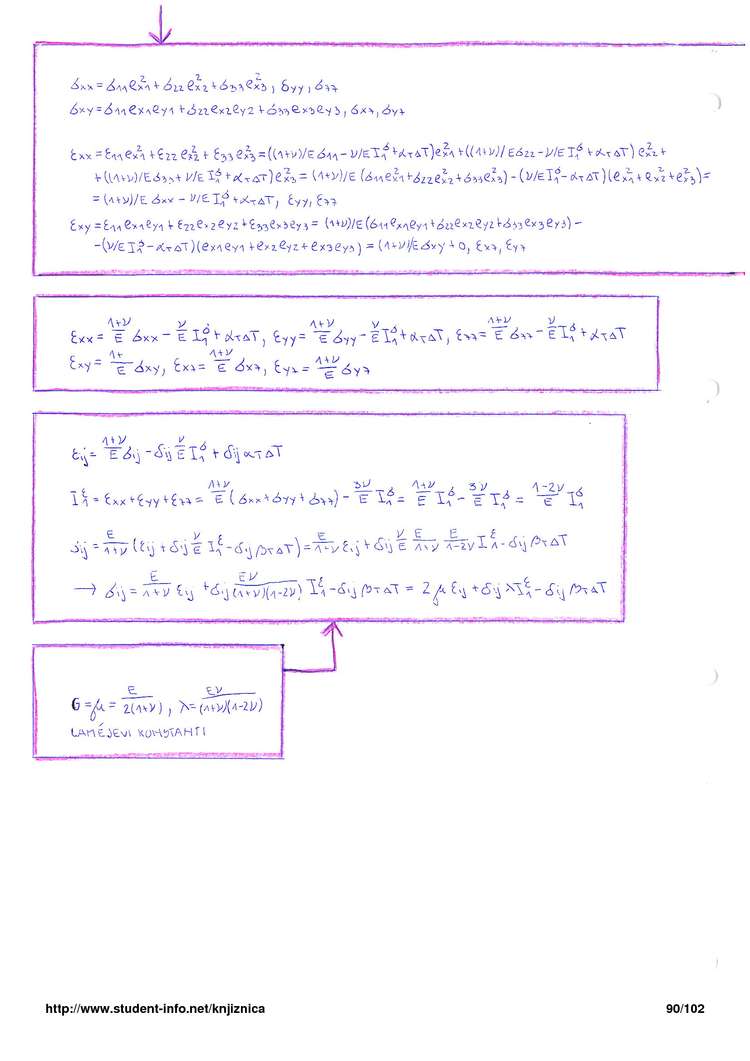 σxx = σ11ex1² + σ22ex2² + σ33ex3², σyy, σzz
σxy = σ11ex1ey1 + σ22ex2ey2 + σ33ex3ey3, σxz, σyz
εxx = ε11ex1² + ε22ex2² + ε33ex3² = ((1+ν)/Eσ11 - ν/E I1^σ + αTΔT)ex1² + ((1+ν)/Eσ22 - ν/E I1^σ + αTΔT) ex2² +
+ ((1+ν)/Eσ33 + ν/E I1^σ + αTΔT)ex3² = (1+ν)/E (σ11ex1² + σ22ex2² + σ33ex3²) - (ν/E I1^σ - αTΔT)(ex1² + ex2² + ex3²) =
= (1+ν)/E σxx - ν/E I1^σ + αTΔT, εyy, εzz
εxy = ε11ex1ey1 + ε22ex2ey2 + ε33ex3ey3 = (1+ν)/E(σ11ex1ey1 + σ22ex2ey2 + σ33ex3ey3) -
-(ν/E I1^σ - αTΔT)(ex1ey1 + ex2ey2 + ex3ey3) = (1+ν)/Eσxy + 0, εxz, εyz
εxx = (1+ν)/E σxx - ν/E I1^σ + αTΔT, εyy = (1+ν)/E σyy - ν/E I1^σ + αTΔT, εzz = (1+ν)/E σzz - ν/E I1^σ + αTΔT
εxy = (1+)/E σxy, εxz = (1+ν)/E σxz, εyz = (1+ν)/E σyz
εij = (1+ν)/E σij - δij ν/E I1^σ + δij αTΔT
I1^ε = εxx + εyy + εzz = (1+ν)/E (σxx + σyy + σzz) - 3ν/E I1^σ = (1+ν)/E I1^σ - 3ν/E I1^σ = (1-2ν)/E I1^σ
σij = E/(1+ν) (εij + δij ν/E I1^σ - δij βTΔT) = E/(1+ν) εij + δij ν/E E/(1+ν) E/(1-2ν) I1^ε - δij βTΔT
→ σij = E/(1+ν) εij + δij Eν/((1+ν)(1-2ν)) I1^ε - δij βTΔT = 2μεij + δij λI1^ε - δij βTΔT
G = μ = E/(2(1+ν)), λ = Eν/((1+ν)(1-2ν))
LAMÉJEVI KONSTANTI
http://www.student-info.net/knjiznica 90/102